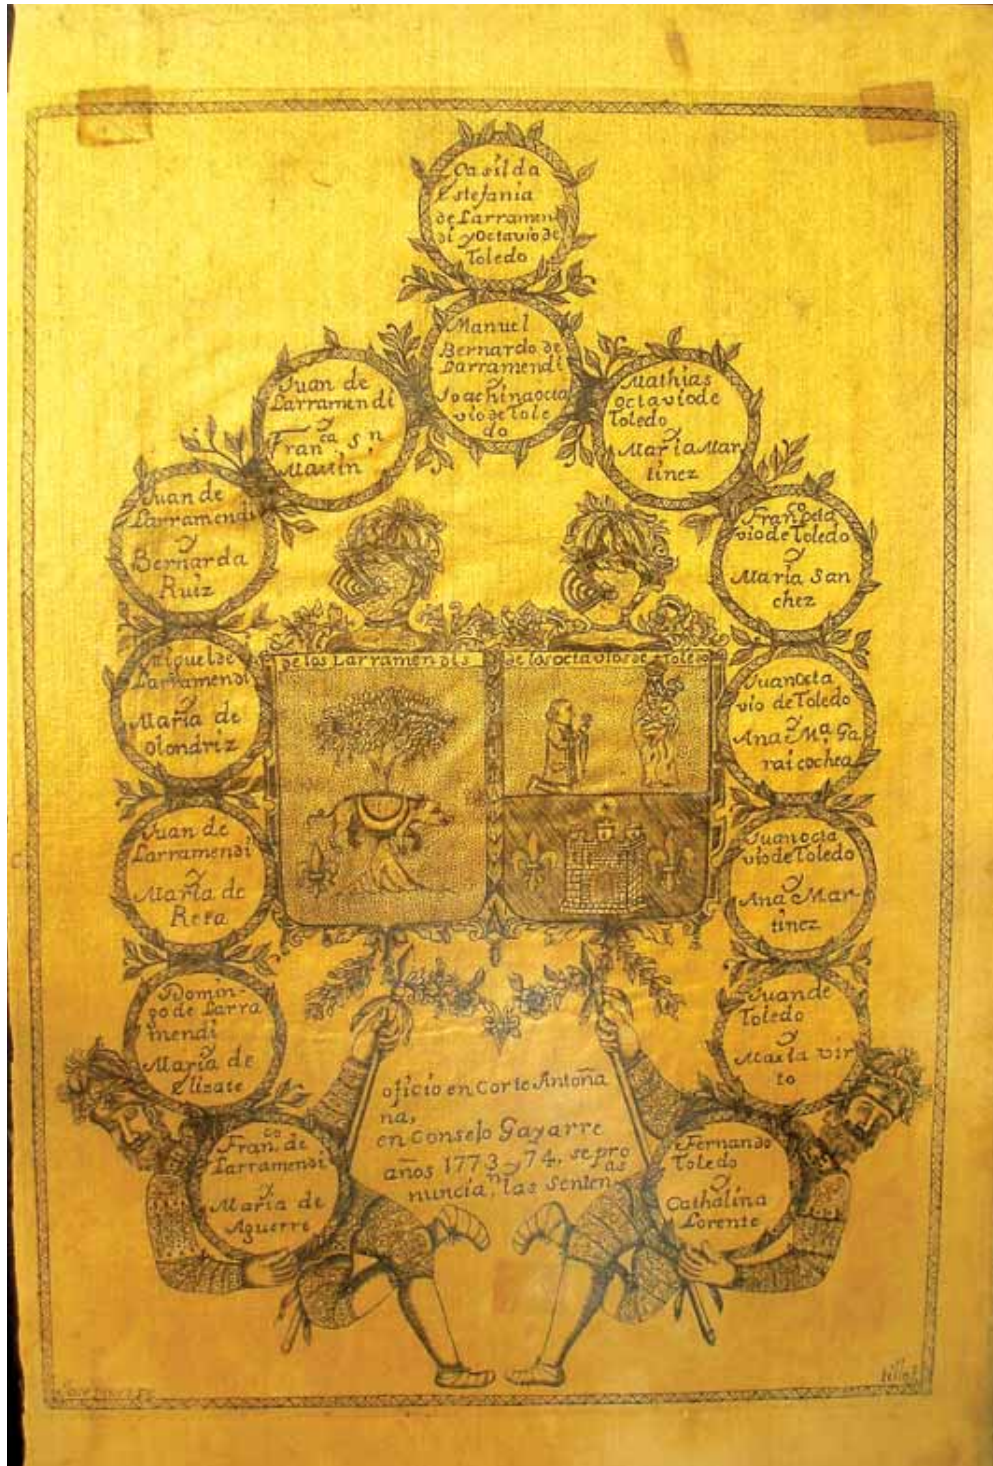 Casilda
Estefania
de Larramen
di y Octavio de
Toledo
Manuel
Bernardo de
Larramendi
y
Joachina octa
vio de Tole
do
Juan de
Larramendi
y
Fran.ca S.n
Martin
Mathias
octavio de
Toledo
y
Maria Mar
tinez
Juan de
Larramendi
y
Bernarda
Ruiz
Fran.co octa
vio de Toledo
y
Maria San
chez
Miguel de
Larramendi
y
Maria de
Olondriz
Juan octa
vio de Toledo
y
Ana M.a Ga
raicochea
de los Larramendis
de los octavios de Toledo
Juan de
Larramendi
y
Maria de
Reta
Juan octa
vio de Toledo
y
Ana Mar
tinez
Domin-
go de Larra
mendi
y
Maria de
Elizate
Juan de
Toledo
y
Maria Vir
to
Fran.co de
Larramendi
y
Maria de
Aguerre
Fernando
Toledo
y
Cathalina
Lorente
oficio en Corte Antoña
na,
en Consejo Gayarre
años 1773 y 74. se pro
nuncia.n las Senten.as